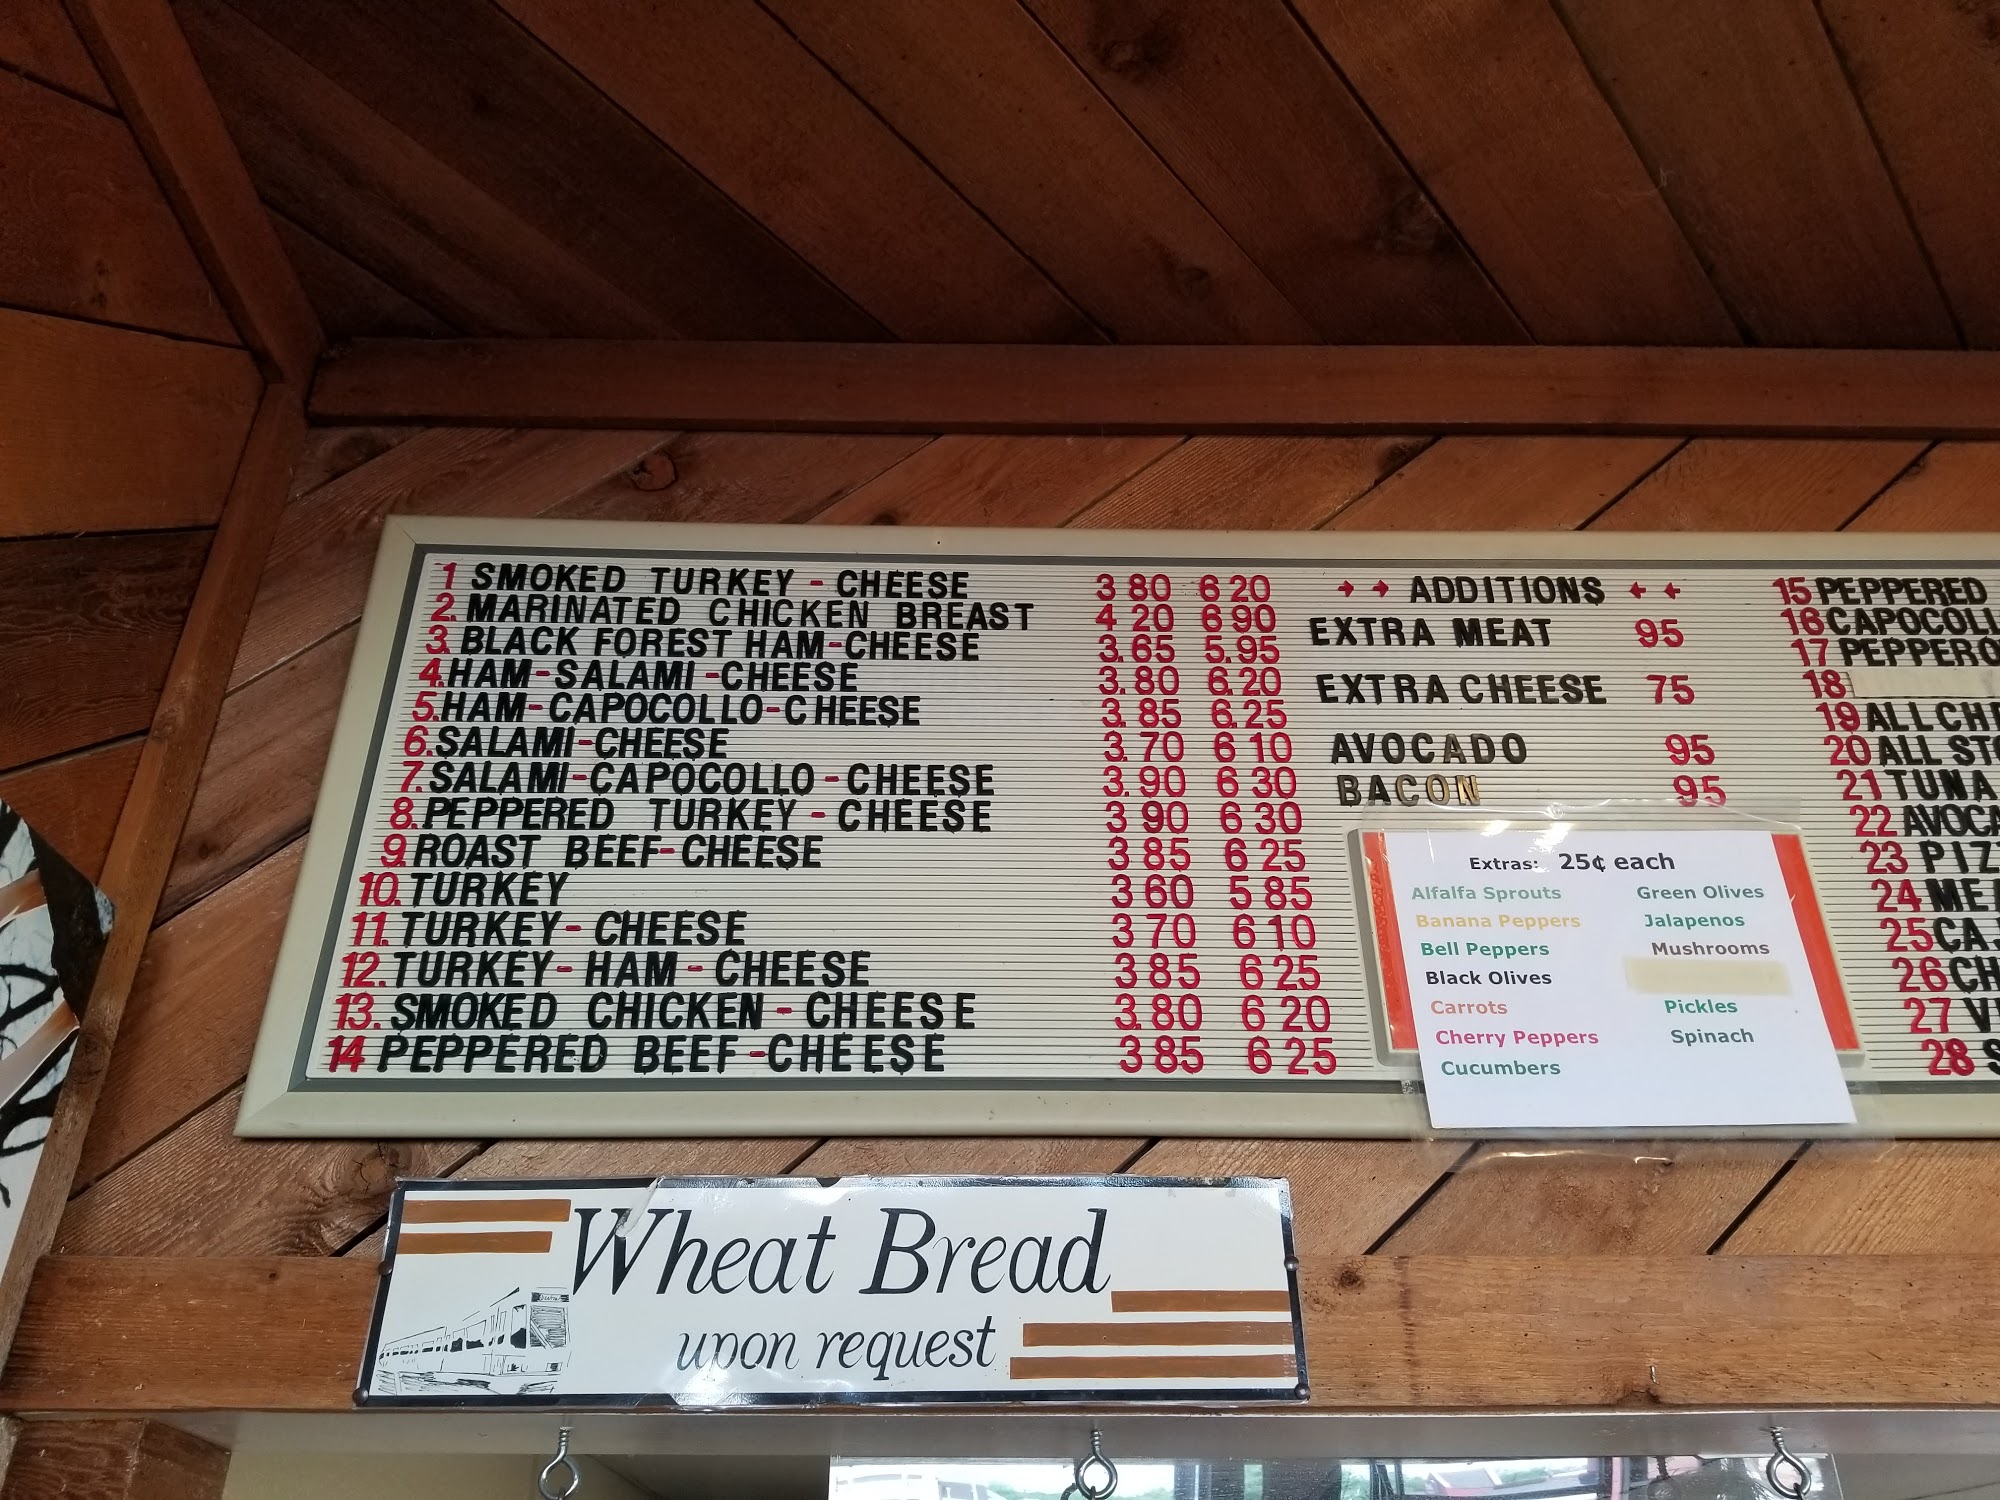 1 SMOKED TURKEY - CHEESE 3 80 6 20
2. MARINATED CHICKEN BREAST 4 20 6 90
3. BLACK FOREST HAM-CHEESE 3.65 5.95
4. HAM-SALAMI-CHEESE 3.80 6.20
5. HAM-CAPOCOLLO-CHEESE 3.85 6.25
6. SALAMI-CHEESE 3.70 6 10
7. SALAMI-CAPOCOLLO-CHEESE 3.90 6 30
8. PEPPERED TURKEY - CHEESE 3 90 6 30
9. ROAST BEEF-CHEESE 3 85 6 25
10. TURKEY 3 60 5 85
11. TURKEY-CHEESE 3 70 6 10
12. TURKEY-HAM-CHEESE 3 85 6 25
13. SMOKED CHICKEN-CHEESE 3.80 6 20
14 PEPPERED BEEF-CHEESE 3 85 6 25
→ → ADDITIONS ← ←
EXTRA MEAT 95
EXTRA CHEESE 75
AVOCADO 95
BACON 95
Extras: 25¢ each
Alfalfa Sprouts
Banana Peppers
Bell Peppers
Black Olives
Carrots
Cherry Peppers
Cucumbers
Green Olives
Jalapenos
Mushrooms
Pickles
Spinach
15 PEPPERED
16 CAPOCOLL
17 PEPPERO
18
19 ALL CHE
20 ALL STO
21 TUNA
22 AVOCA
23 PIZ
24 MEA
25 CAJ
26 CH
27 V
28 S
Wheat Bread
upon request